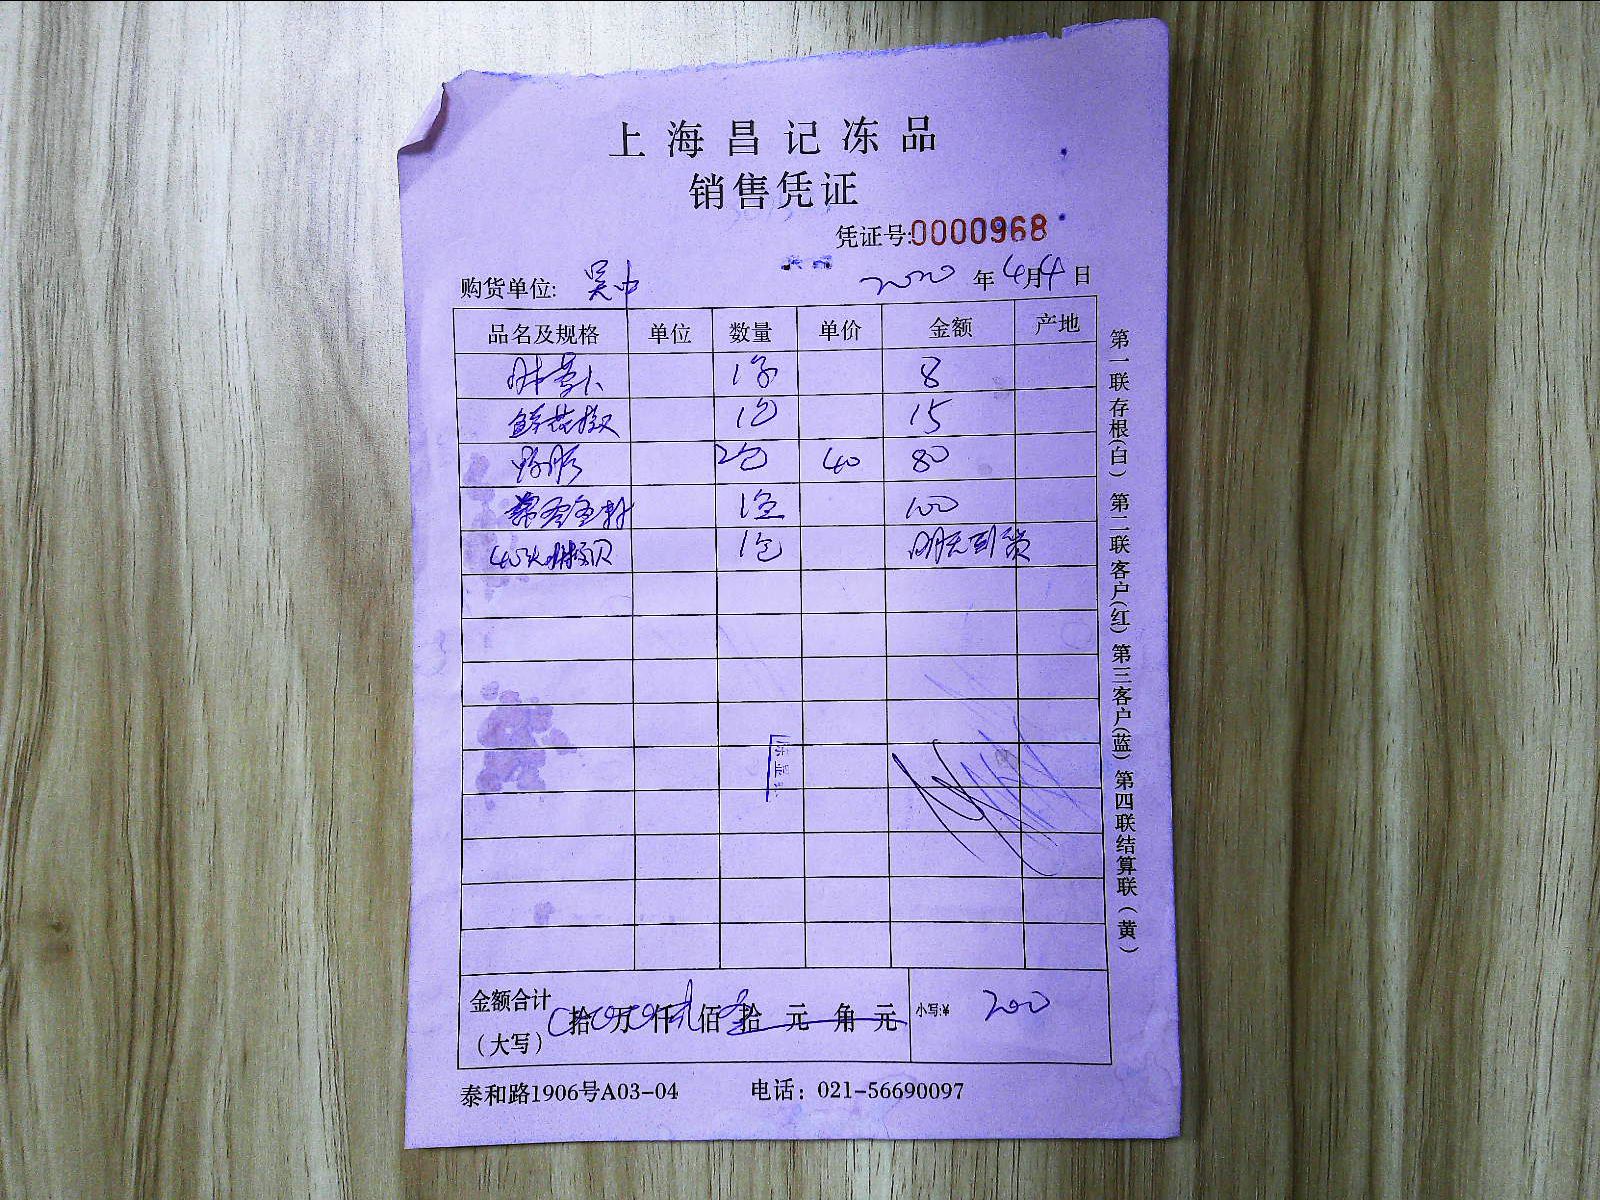 上海昌记冻品
销售凭证
凭证号:0000968
购货单位: 吴中 2020年4月4日
品名及规格 单位 数量 单价 金额 产地
8
鲜花椒 1包 15
2包 40 80
1盒 100
1包 明天到货
金额合计(大写) 拾 万 仟 佰 拾 元 角 元 小写:¥ 200
泰和路1906号A03-04 电话: 021-56690097
第一联存根(白) 第二联客户(红) 第三客户(蓝) 第四联结算联(黄)